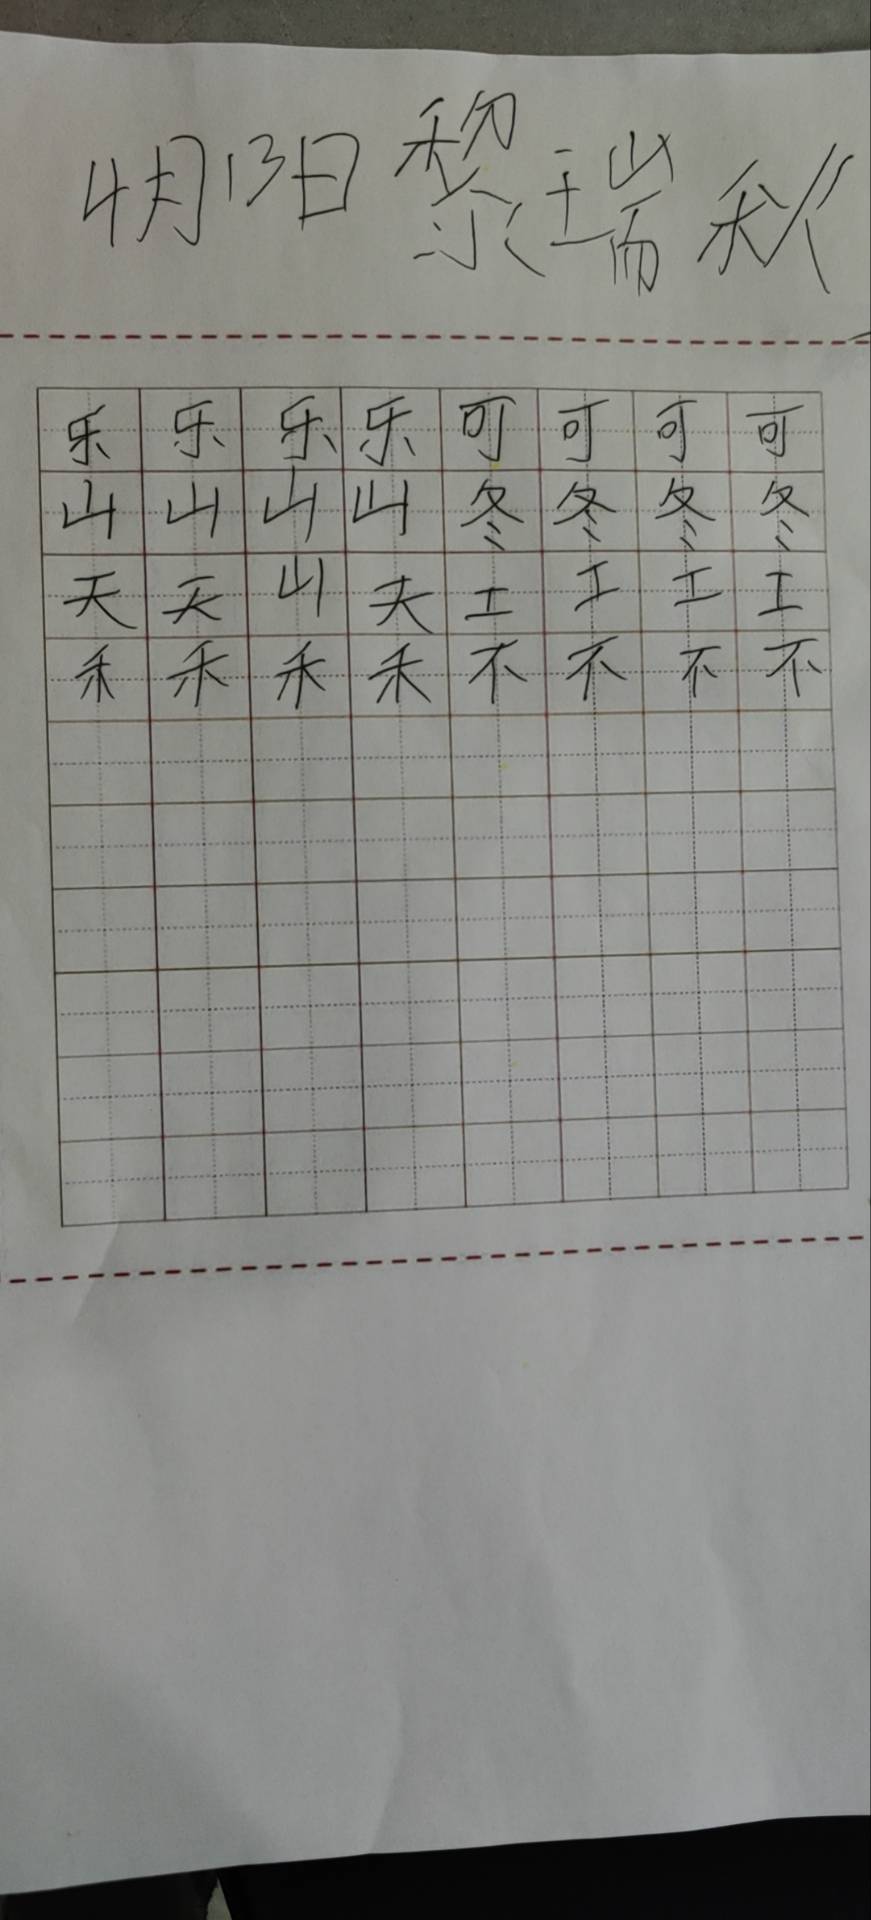 4月13日 黎瑞秋
乐乐乐乐可可可可
山山山山冬冬冬冬
天天山夫工工工工
禾禾禾禾不不不不